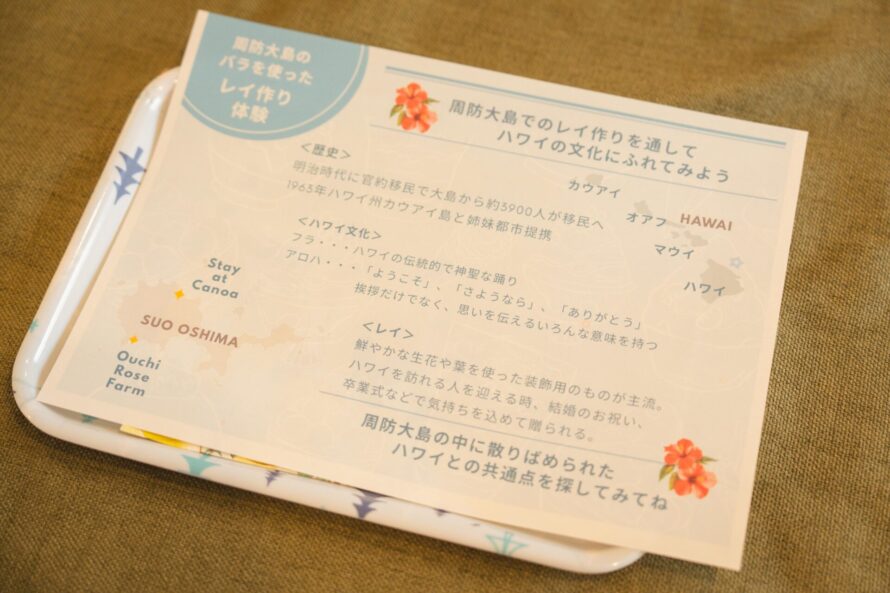 周防大島の
バラを使った
レイ作り
体験
周防大島でのレイ作りを通して
ハワイの文化にふれてみよう
<歴史>
明治時代に官約移民で大島から約3900人が移民へ
1963年ハワイ州カウアイ島と姉妹都市提携
カウアイ
オアフ
HAWAI
マウイ
ハワイ
<ハワイ文化>
フラ・・・ハワイの伝統的で神聖な踊り
アロハ・・・「ようこそ」、「さようなら」、「ありがとう」
挨拶だけでなく、思いを伝えるいろんな意味を持つ
Stay
at
Canoa
SUO OSHIMA
Ouchi
Rose
Farm
<レイ>
鮮やかな生花や葉を使った装飾用のものが主流。
ハワイを訪れる人を迎える時、結婚のお祝い、
卒業式などで気持ちを込めて贈られる。
周防大島の中に散りばめられた
ハワイとの共通点を探してみてね